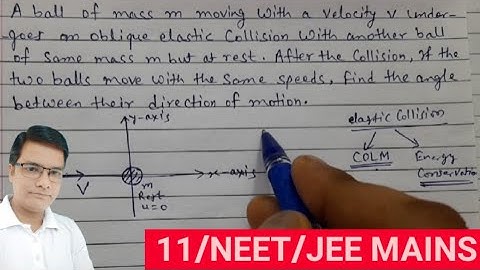 A ball of mass m moving with a velocity v under-
goes an oblique elastic Collision with another ball
of same mass m but at rest. After the Collision, if the
two balls move with the same speeds, find the angle
between their direction of motion.
y-axis
elastic Collision
COLM
Energy
Conservation
x-axis
V
m
Rest
u=0
11/NEET/JEE MAINS